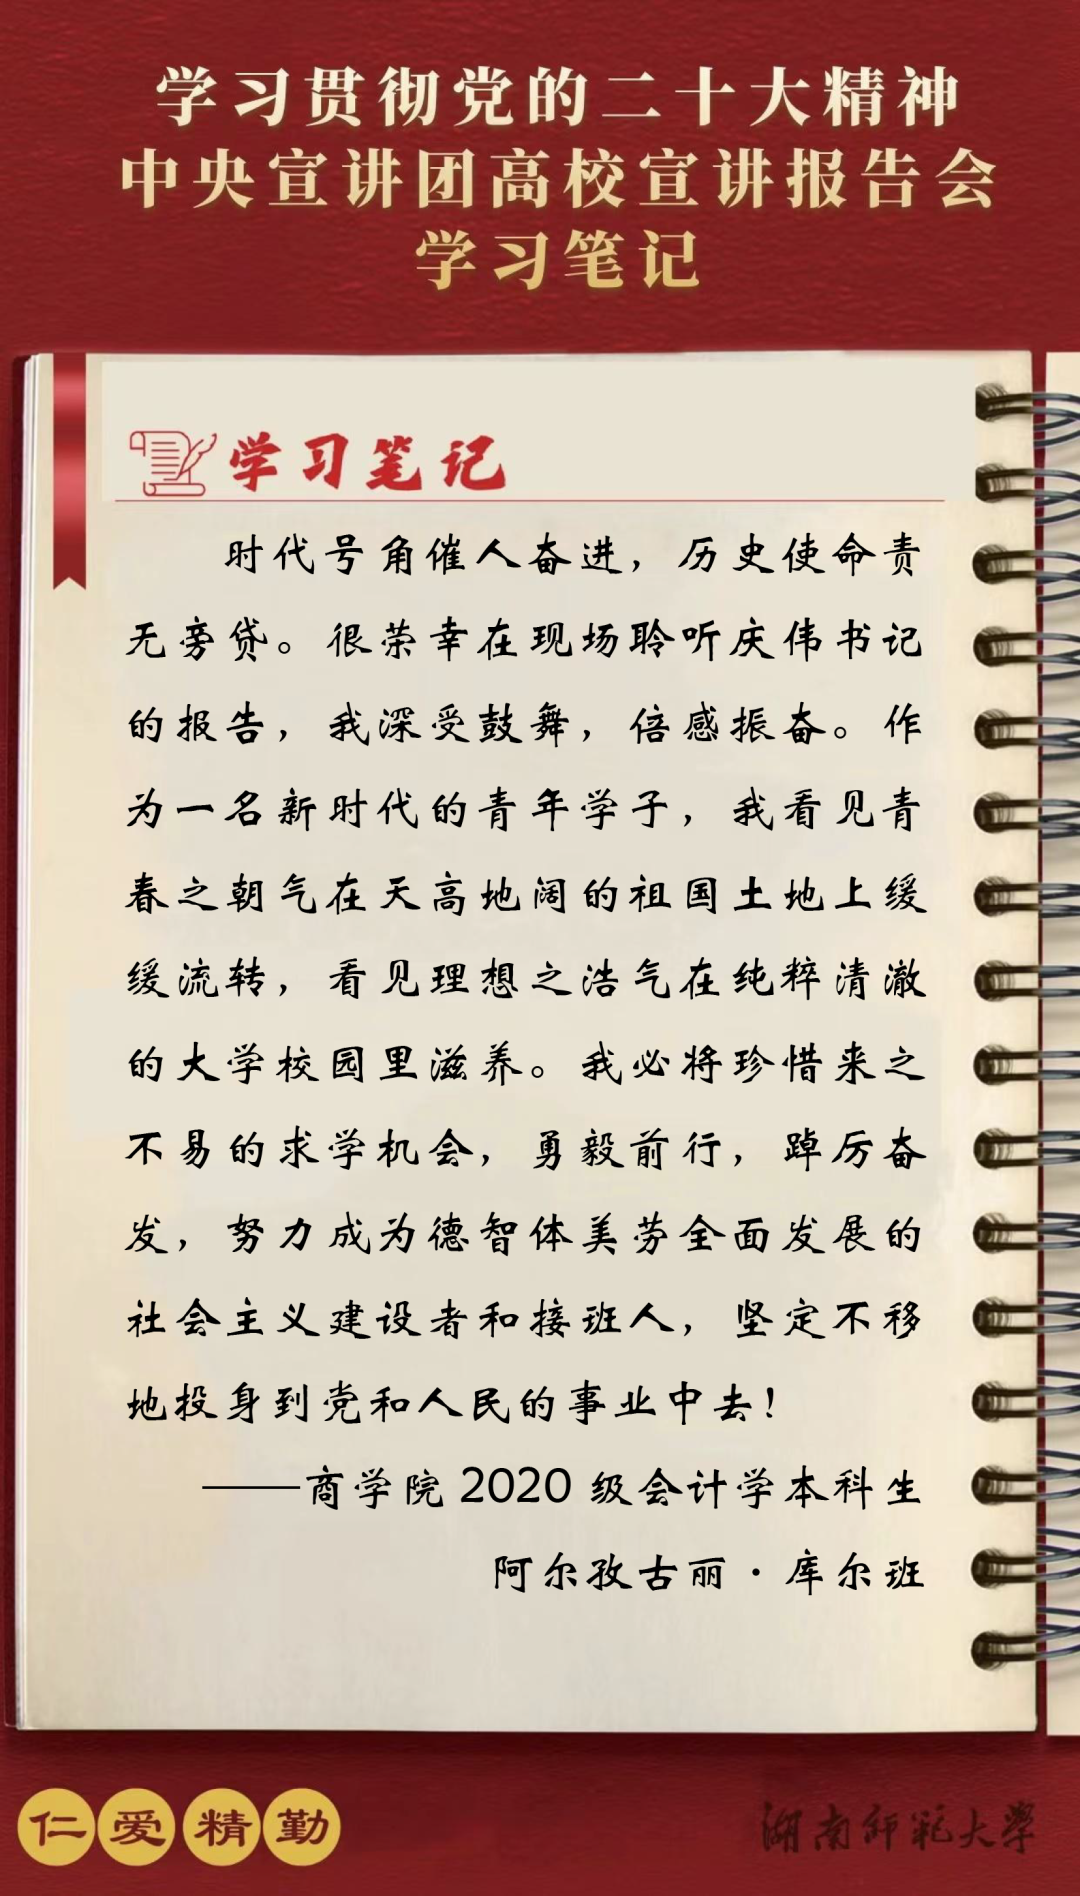 学习贯彻党的二十大精神
中央宣讲团高校宣讲报告会
学习笔记
学习笔记
时代号角催人奋进，历史使命责
无旁贷。很荣幸在现场聆听庆伟书记
的报告，我深受鼓舞，倍感振奋。作
为一名新时代的青年学子，我看见青
春之朝气在天高地阔的祖国土地上缓
缓流转，看见理想之浩气在纯粹清澈
的大学校园里滋养。我必将珍惜来之
不易的求学机会，勇毅前行，踔厉奋
发，努力成为德智体美劳全面发展的
社会主义建设者和接班人，坚定不移
地投身到党和人民的事业中去！
——商学院 2020 级会计学本科生
阿尔孜古丽·库尔班
仁爱精勤
湖南师范大学